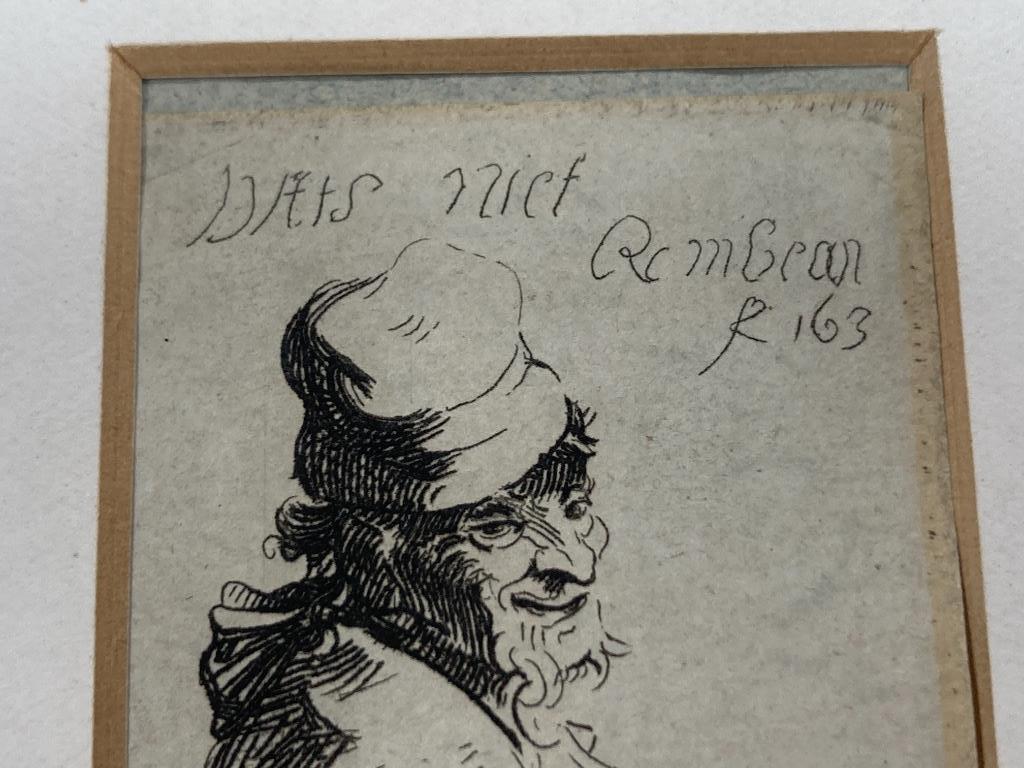 Dats niet
Rembran
f 163